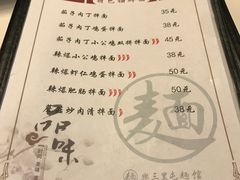 茄子肉丁拌面 35元
茄子肉丁鸡蛋拌面 38元
茄子肉丁小公鸡双拼拌面 45元
辣爆小公鸡拌面 38元
辣爆虾仁鸡蛋拌面 50元
辣爆肥肠拌面 50元
炒肉清拌面 38元
味
麺